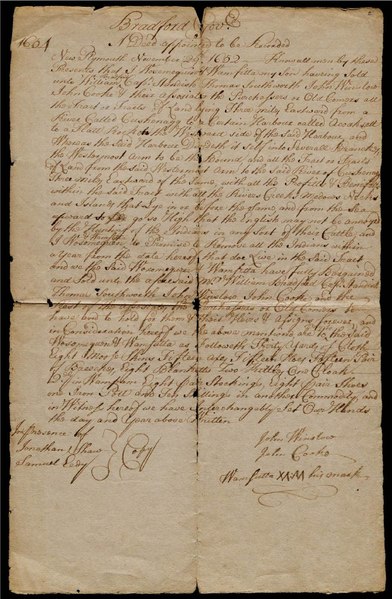 Bradford Gov:r
1654
A Deed appointed to be Recorded
New Plymouth November 29th 1652 Know all men by these
Presents that I Wesamequen & Wamsutta my Son have Sold
unto William Capt Standish Thomas Southworth John Winslow
John Cooke & their associates the Purchasers or Old Comers all
the Tract or Tracts of Land lying Three miles Eastward from a
River Called Cushenagg to a Certain Harbour called Acoaksett
to a Flatt Rock on the Westward side of the Said Harbour and
Whereas the Said Harbour Devideth it self into Severall Branches
the Westermost arm to be the Bound and all the Tract or Tracts
of Land from the Said Westermost arm to the Said River of Cushenagg
three miles Eastward of the Same with all the Profitts & Benefitts
within the Said Tract with all the Rivers Creeks Meadows Necks
and Islands that Lye in or before the Same and from the Sea
upward to go so High that the English may not be annoyed
by the Hunting of the Indians in any Sort of their Cattle and
I Wesamequen & Wamsutta do Promise to Remove all the Indians within
a Year from the date hereof that do Live in the Said Tract
and we the Said Wesamequen & Wamsutta have fully Bargained
and Sold unto the aforesaid Mr William Bradford Capt Standish
Thomas Southworth John Winslow John Cooke and the
Rest of their associates the Purchasers or Old Comers to
have and to hold for them their Heirs & assigns forever, and
in Consideration hereof we the above mentioned are to Give the Said
Wesamequen & Wamsutta as followeth Thirty Yards of Cloth
Eight Moose Skins Fifteen axes Fifteen Hoes Fifteen Pair
of Breeches Eight Blankets Two Kettles One Cloak
in Wampam Eight Pair Stockings Eight Pair Shoes
One Iron Pott and Ten Shillings in another Commodity, and
in Witness hereof we have Interchangeably Set Our Hands
the day and Year above Written
In Presence of
Jonathan Shaw
Samuel Eddy
Copy
John Winslow
John Cooke
Wamsutta his mark